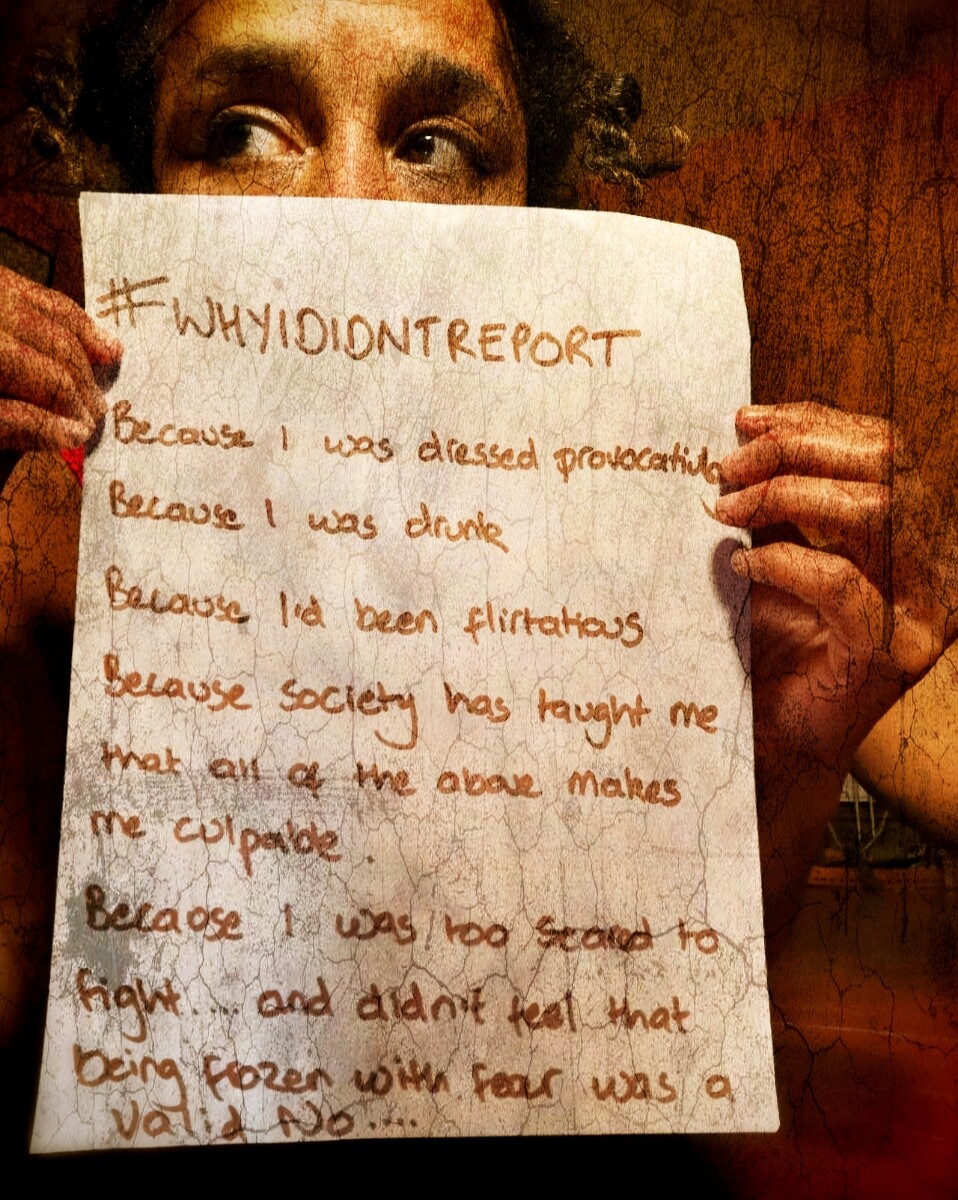 #WHYIDIDNTREPORT
Because I was dressed provocativ
Because I was drunk
Because I'd been flirtatious
Because society has taught me
that all of the above makes
me culpable.
Because I was too scared to
fight.... and didn't feel that
being frozen with fear was a
valid No....